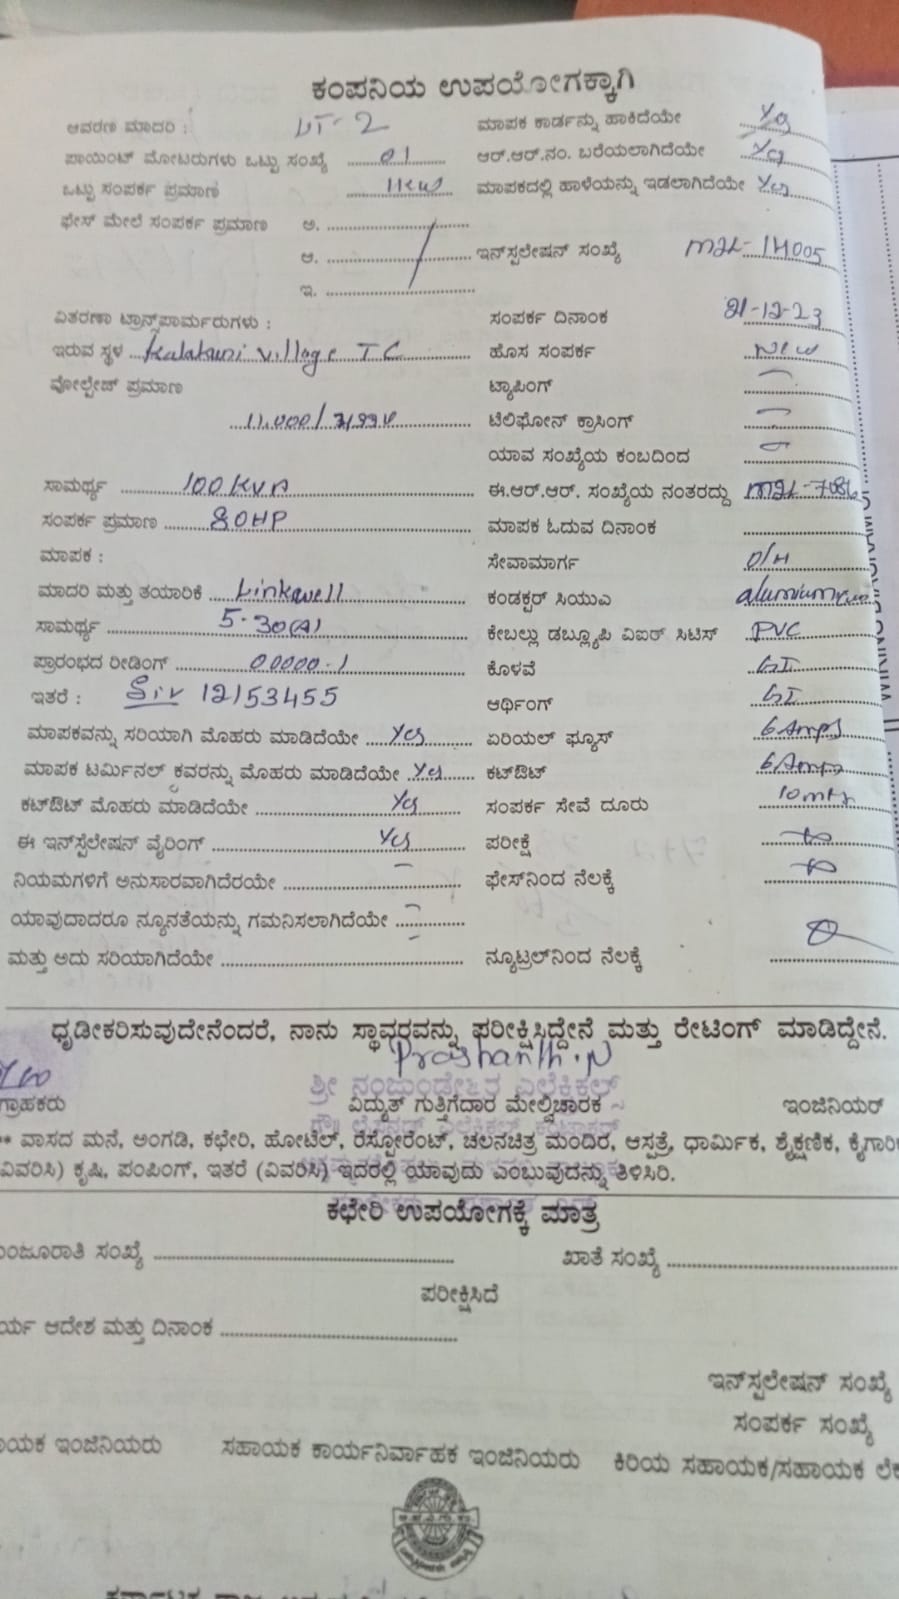 ಕಂಪನಿಯ ಉಪಯೋಗಕ್ಕಾಗಿ
ಆವರಣ ಮಾದರಿ : LT-2 ಮಾಪಕ ಕಾರ್ಡನ್ನು ಹಾಕಿದೆಯೇ Yes
ಪಾಯಿಂಟ್ ಮೋಟರುಗಳು ಒಟ್ಟು ಸಂಖ್ಯೆ 01 ಆರ್.ಆರ್.ನಂ. ಬರೆಯಲಾಗಿದೆಯೇ Yes
ಒಟ್ಟು ಸಂಪರ್ಕ ಪ್ರಮಾಣ 1kw ಮಾಪಕದಲ್ಲಿ ಹಾಳೆಯನ್ನು ಇಡಲಾಗಿದೆಯೇ Yes
ಫೇಸ್ ಮೇಲೆ ಸಂಪರ್ಕ ಪ್ರಮಾಣ ಅ.
ಆ. ಇನ್‌ಸ್ಪಲೇಷನ್ ಸಂಖ್ಯೆ MJL-14005
ಇ.
ವಿತರಣಾ ಟ್ರಾನ್ಸ್‌ಪಾರ್ಮರುಗಳು : ಸಂಪರ್ಕ ದಿನಾಂಕ 21-12-23
ಇರುವ ಸ್ಥಳ Village TC ಹೊಸ ಸಂಪರ್ಕ New
ವೋಲ್ಟೇಜ್ ಪ್ರಮಾಣ ಟ್ಯಾಪಿಂಗ್ –
11,000/ ಟೆಲಿಫೋನ್ ಕ್ರಾಸಿಂಗ್ –
ಯಾವ ಸಂಖ್ಯೆಯ ಕಂಬದಿಂದ –
ಸಾಮರ್ಥ್ಯ 100 KVA ಈ.ಆರ್.ಆರ್. ಸಂಖ್ಯೆಯ ನಂತರದ್ದು
ಸಂಪರ್ಕ ಪ್ರಮಾಣ 80HP ಮಾಪಕ ಓದುವ ದಿನಾಂಕ
ಮಾಪಕ : ಸೇವಾಮಾರ್ಗ O/H
ಮಾದರಿ ಮತ್ತು ತಯಾರಿಕೆ Linkwell ಕಂಡಕ್ಟರ್ ಸಿಯುಎ alumiumrun
ಸಾಮರ್ಥ್ಯ 5-30(A) ಕೇಬಲ್ಲು ಡಬ್ಲ್ಯೂಪಿ ವಿಐಆರ್ ಸಿಟಿಸ್ PVC
ಪ್ರಾರಂಭದ ರೀಡಿಂಗ್ 00000.1 ಕೊಳವೆ GI
ಇತರೆ : 12153455 ಆರ್ಥಿಂಗ್ GI
ಮಾಪಕವನ್ನು ಸರಿಯಾಗಿ ಮೊಹರು ಮಾಡಿದೆಯೇ Yes ಏರಿಯಲ್ ಫ್ಯೂಸ್ 6 Amps
ಮಾಪಕ ಟರ್ಮಿನಲ್ ಕವರನ್ನು ಮೊಹರು ಮಾಡಿದೆಯೇ Yes ಕಟ್‌ಔಟ್ 6 Amps
ಕಟ್‌ಔಟ್ ಮೊಹರು ಮಾಡಿದೆಯೇ Yes ಸಂಪರ್ಕ ಸೇವೆ ದೂರು 10 mtr
ಈ ಇನ್‌ಸ್ಪೆಲೇಷನ್ ವೈರಿಂಗ್ Yes ಪರೀಕ್ಷೆ
ನಿಯಮಗಳಿಗೆ ಅನುಸಾರವಾಗಿದೆರಯೇ – ಫೇಸ್‌ನಿಂದ ನೆಲಕ್ಕೆ
ಯಾವುದಾದರೂ ನ್ಯೂನತೆಯನ್ನು ಗಮನಿಸಲಾಗಿದೆಯೇ –
ಮತ್ತು ಅದು ಸರಿಯಾಗಿದೆಯೇ – ನ್ಯೂಟ್ರಲ್‌ನಿಂದ ನೆಲಕ್ಕೆ
ಧೃಡೀಕರಿಸುವುದೇನೆಂದರೆ, ನಾನು ಸ್ಥಾವರವನ್ನು ಪರೀಕ್ಷಿಸಿದ್ದೇನೆ ಮತ್ತು ರೇಟಿಂಗ್ ಮಾಡಿದ್ದೇನೆ.
Prashanth.N
ಶ್ರೀ ನಂಜುಂಡೇಶ್ವರ ಎಲೆಕ್ಟ್ರಿಕಲ್ಸ್
ಗ್ರಾಹಕರು ವಿದ್ಯುತ್ ಗುತ್ತಿಗೆದಾರ ಮೇಲ್ವಿಚಾರಕ ಇಂಜಿನಿಯರ್
** ವಾಸದ ಮನೆ, ಅಂಗಡಿ, ಕಛೇರಿ, ಹೋಟೆಲ್, ರೆಸ್ಟೋರೆಂಟ್, ಚಲನಚಿತ್ರ ಮಂದಿರ, ಆಸ್ಪತ್ರೆ, ಧಾರ್ಮಿಕ, ಶೈಕ್ಷಣಿಕ, ಕೈಗಾರಿ
ವಿವರಿಸಿ) ಕೃಷಿ, ಪಂಪಿಂಗ್, ಇತರೆ (ವಿವರಿಸಿ) ಇದರಲ್ಲಿ ಯಾವುದು ಎಂಬುವುದನ್ನು ತಿಳಿಸಿರಿ.
ಕಛೇರಿ ಉಪಯೋಗಕ್ಕೆ ಮಾತ್ರ
ಂಜೂರಾತಿ ಸಂಖ್ಯೆ ಖಾತೆ ಸಂಖ್ಯೆ
ಪರೀಕ್ಷಿಸಿದೆ
ರ್ಯ ಆದೇಶ ಮತ್ತು ದಿನಾಂಕ
ಇನ್‌ಸ್ಪಲೇಷನ್ ಸಂಖ್ಯೆ
ಸಂಪರ್ಕ ಸಂಖ್ಯೆ
ಾಯಕ ಇಂಜಿನಿಯರು ಸಹಾಯಕ ಕಾರ್ಯನಿರ್ವಾಹಕ ಇಂಜಿನಿಯರು ಕಿರಿಯ ಸಹಾಯಕ/ಸಹಾಯಕ ಲೆಕ